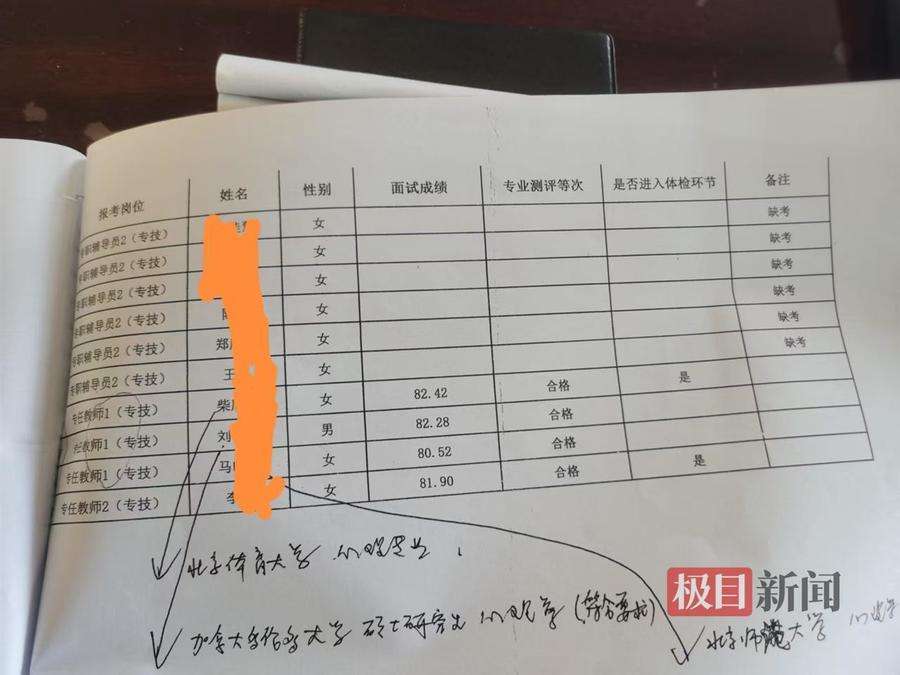 报考岗位 姓名 性别 面试成绩 专业测评等次 是否进入体检环节 备注
专职辅导员2（专技） 女 缺考
专职辅导员2（专技） 女 缺考
专职辅导员2（专技） 女 缺考
专职辅导员2（专技） 女 缺考
专职辅导员2（专技） 郑 女 缺考
专职辅导员2（专技） 王 女 缺考
专任教师1（专技） 柴 女 82.42 合格 是
任教师1（专技） 刘 男 82.28 合格
专任教师1（专技） 马 女 80.52 合格
专任教师2（专技） 李 女 81.90 合格 是
北京体育大学 心理专业
加拿大多伦多大学 硕士研究生 心理学（符合要求）
北京师范大学 心理学
极目新闻